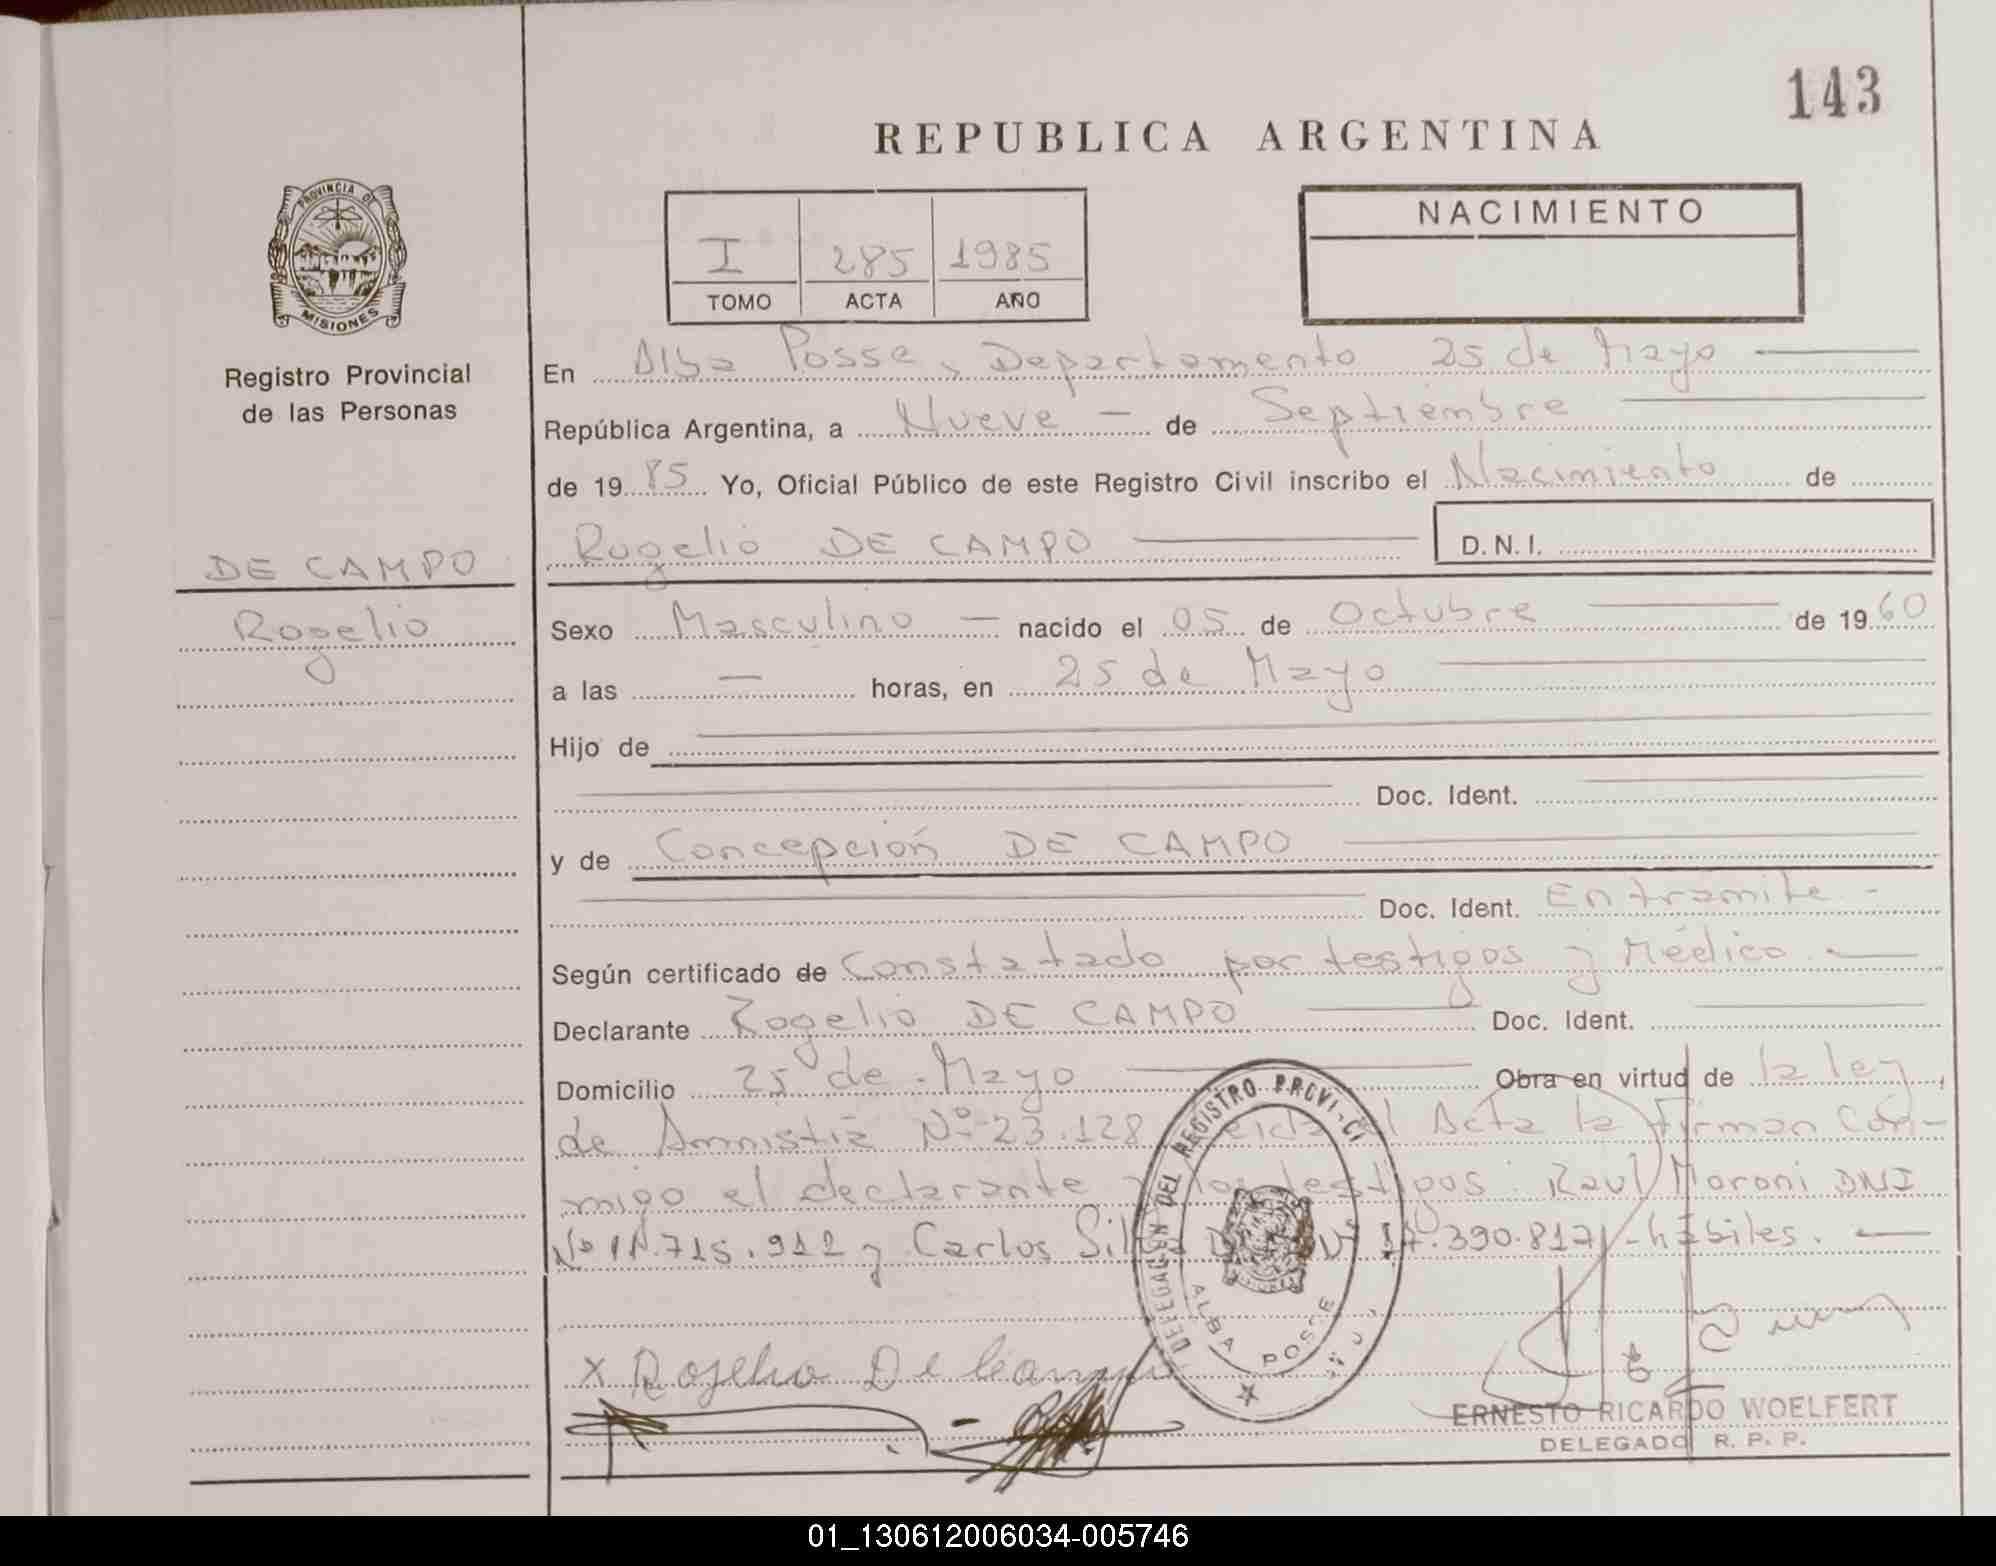 143
REPUBLICA ARGENTINA
PROVINCIA DE
MISIONES
Registro Provincial
de las Personas
I 285 1985
TOMO ACTA AÑO
NACIMIENTO
En Alba Posse, Departamento 25 de Mayo
República Argentina, a Nueve de Septiembre
de 1985 Yo, Oficial Público de este Registro Civil inscribo el Nacimiento de
Rogelio DE CAMPO D.N.I.
DE CAMPO
Rogelio
Sexo Masculino nacido el 05 de Octubre de 1960
a las — horas, en 25 de Mayo
Hijo de
Doc. Ident.
y de Concepción DE CAMPO
Doc. Ident. En trámite -
Según certificado de Constatado por testigos y Médico.
Declarante Rogelio DE CAMPO Doc. Ident.
Domicilio 25 de Mayo Obra en virtud de la ley
de Amnistia Nº 23.128 el Acta la firman con-
migo el declarante y los testigos: Raul Moroni DNI
Nº 715.912 y Carlos 390.817 - hábiles.
DELEGACION DEL REGISTRO
ALBA POSSE
X Rogelio De Campo
ERNESTO RICARDO WOELFERT
DELEGADO R. P. P.
01_130612006034-005746